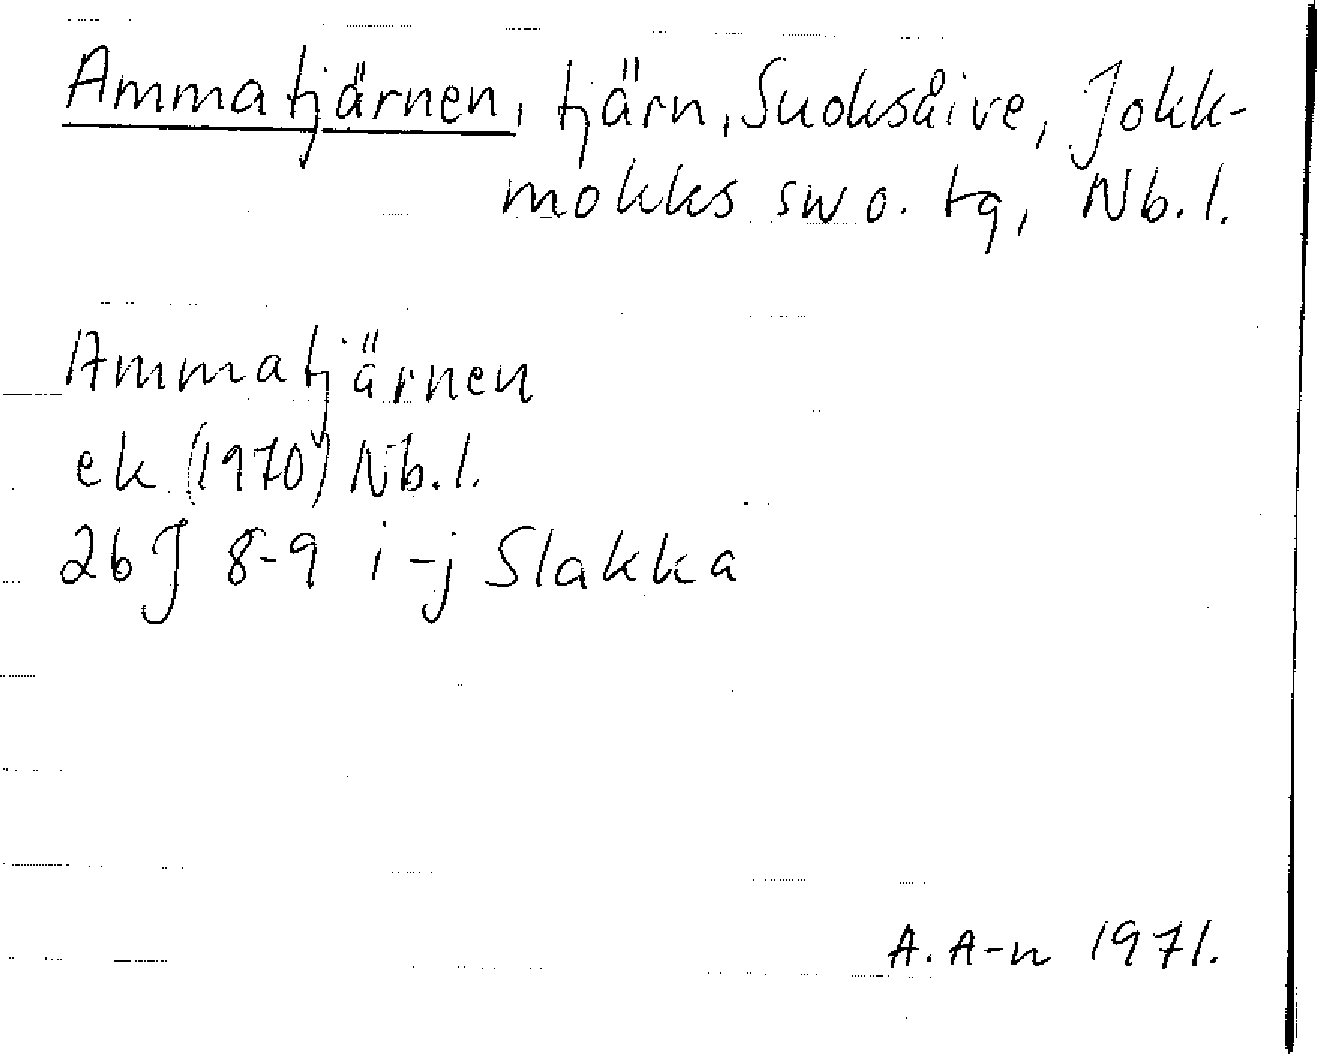 Ammatjärnen, tjärn, Suoksåive, Jokk-
mokks sn o. tg, Nb.l.
Ammatjärnen
ek (1970) Nb.l.
26J 8-9 i-j Slakka
A. A-n 1971.